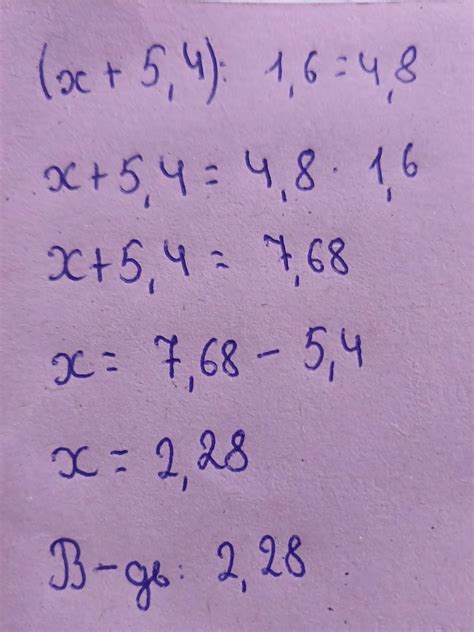 (x + 5,4): 1,6 = 4,8
x + 5,4 = 4,8 · 1,6
x + 5,4 = 7,68
x = 7,68 - 5,4
x = 2,28
В-дь: 2,28